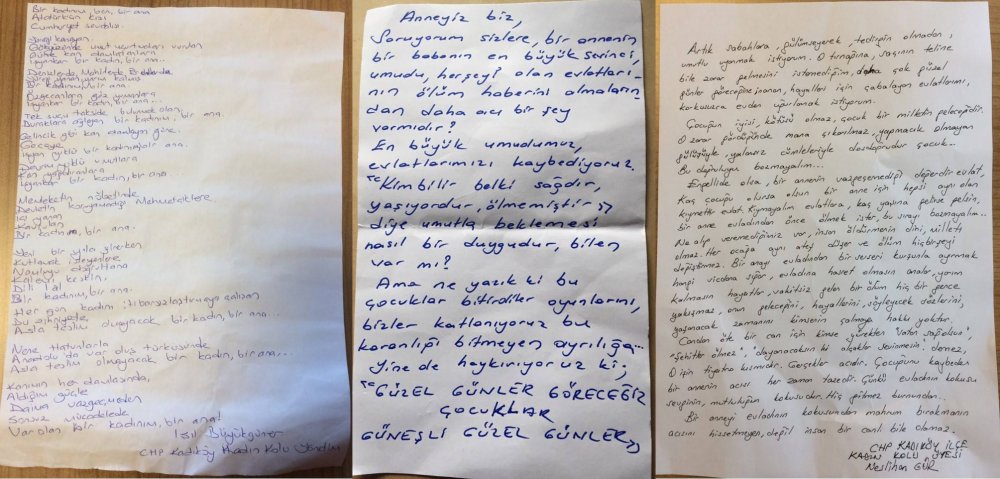 Bir kadınım, ben, bir ana
Atatürkün kızı
Cumhuriyet sevdalısı.
Gökyüzünde umut uçurtmaları vurulan
isyankar bir kadın, bir ana...
Bir kadınım, bir ana.
Özgecanlara göz yumanlara
isyankar bir kadın, bir ana...
Tek suçu takside bulunmak olan,
Duraklara ağlayan bir kadınım, bir ana.
Gelincik gibi kan ağlayan güne,
Geceye
Devrik yıldız umutlara
Kan yağdıranlara
isyankar bir kadın, bir ana.
Memleketin nöbetinde
Devletin koruyamadığı Mehmetciklere
İçi yanan
Kavrulan
Bir kadınım, bir ana.
Yeni bir yıla girerken
Kutlamak isteyenlere
Namluyu doğrultana
Kalleşi keskin,
Dili lal
Bir kadınım, bir ana.
Her gün kadını itibarsızlaştırmaya çalışan
Bu zihniyete
Asla teslim olmayacak bir kadın, bir ana...
Nene Hatunlarla
Anadolu'da var oluş türküsünde
Asla teslim olmayacak bir kadın, bir ana...
Kanımın her damlasında,
Aldığım güçle
Daima vazgeçmeden
Sonsuz mücadelede
Var olan bir kadınım, bir ana!
Işıl Büyükgüner
CHP Kadıköy Kadın Kolu Yönetim
Anneyiz biz,
Soruyorum sizlere, bir annenin
bir babanın en büyük sevinci,
umudu, herşeyi olan evlatları-
nın ölüm haberini almaların-
dan daha acı bir şey
varmıdır?
En büyük umudumuz,
evlatlarımızı kaybediyoruz.
"Kimbilir belki sağdır,
yaşıyordur, ölmemiştir"
diye umutla beklemesi
nasıl bir duygudur, bilen
var mı?
Ama ne yazık ki bu
çocuklar bitirdiler oyunlarını,
bizler katlanıyoruz bu
karanlığı bitmeyen ayrılığa...
Yine de haykırıyoruz ki;
"GÜZEL GÜNLER GÖRECEĞİZ
ÇOCUKLAR
GÜNEŞLİ GÜZEL GÜNLER"
Artık sabahlara, gülümseyerek, tedirgin olmadan,
umutlu uyanmak istiyorum. O tırnağına, saçının teline
bile zarar gelmesini istemediğim, daha çok güzel
günler göreceğine inanan, hayalleri için çabalayan evlatlarımı,
korkusuzca evden uğurlamak istiyorum.
Çocuğun iyisi, kötüsü olmaz, çocuk bir milletin geleceğidir.
O zarar gördüğünde mana çıkarılmaz, yapmacık olmayan
gülüşüyle, yalansız cümleleriyle dosdoğrudur çocuk...
Bu doğruluğu bozmayalım...
Engellide olsa, bir annenin vazgeçemediği değerdir evlat,
Kaç çocuğu olursa olsun bir anne için hepsi ayrı olan
kıymettir evlat. Kıymayalım evlatlara, kaç yaşına gelirse gelsin,
bir anne evladından önce ölmek ister, bu sırayı bozmayalım...
Ne alıp veremediğimiz var, insan öldürmenin dini, milleti
olmaz. Her ocağa ayrı ateş düşer ve ölüm hiçbirşeyi
değiştirmez. Bir anayı evladından bir serseri kurşunla ayırmak
hangi vicdana sığar, evladına hasret olmasın analar, yarım
kalmasın hayatlar, vakitsiz gelen bir ölüm hiç bir gence
yakışmaz, onun geleceğini, hayallerini, söyleyecek sözlerini,
yaşanacak zamanını kimsenin çalmaya hakkı yoktur.
Candan öte bir can için kimse yürekten "Vatan sağolsun"
"Şehitler ölmez", "dayanacaksın ki alçaklar sevinmesin" demez,
O işin tiyatro kısmıdır. Gerçekler acıdır. Çocuğunu kaybeden
bir annenin acısı her zaman tazedir. Çünkü evladının kokusu
sevginin, mutluluğun kokusudur. Hiç gitmez burnundan...
Bir anneyi evladının kokusundan mahrum bırakmanın
acısını hissetmeyen, değil insan bir canlı bile olamaz.
CHP KADIKÖY İLÇE
KADIN KOLU ÜYESİ
Neslihan GÜR